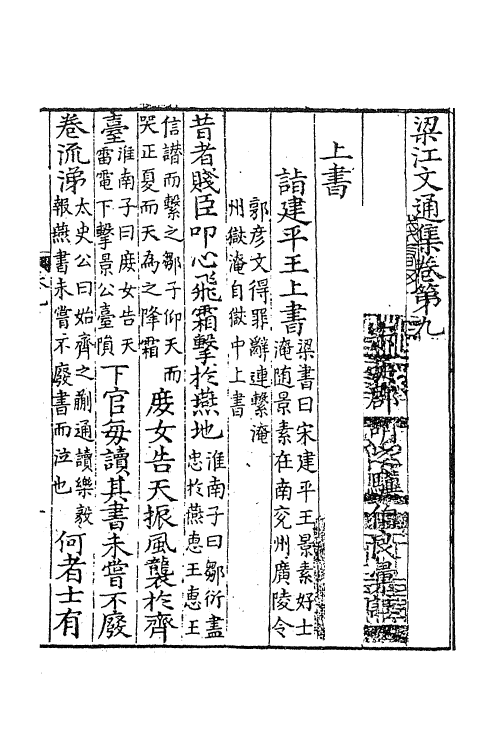 梁江文通集卷第九
上書
詣建平王上書
梁書曰宋建平王景素好士
淹随景素在南兖州廣陵令
郭彦文得罪辭連繫淹
州獄淹自獄中上書
昔者賤臣叩心飛霜擊於燕地
淮南子曰鄒衍盡
忠於燕惠王惠王
信譖而繫之鄒子仰天而
哭正夏而天為之降霜
庶女告天振風襲於齊
臺
淮南子曰庶女告天
雷電下擊景公臺隕
下官每讀其書未嘗不廢
卷流涕
太史公曰始齊之蒯通讀樂毅
報燕書未嘗不廢書而泣也
何者士有